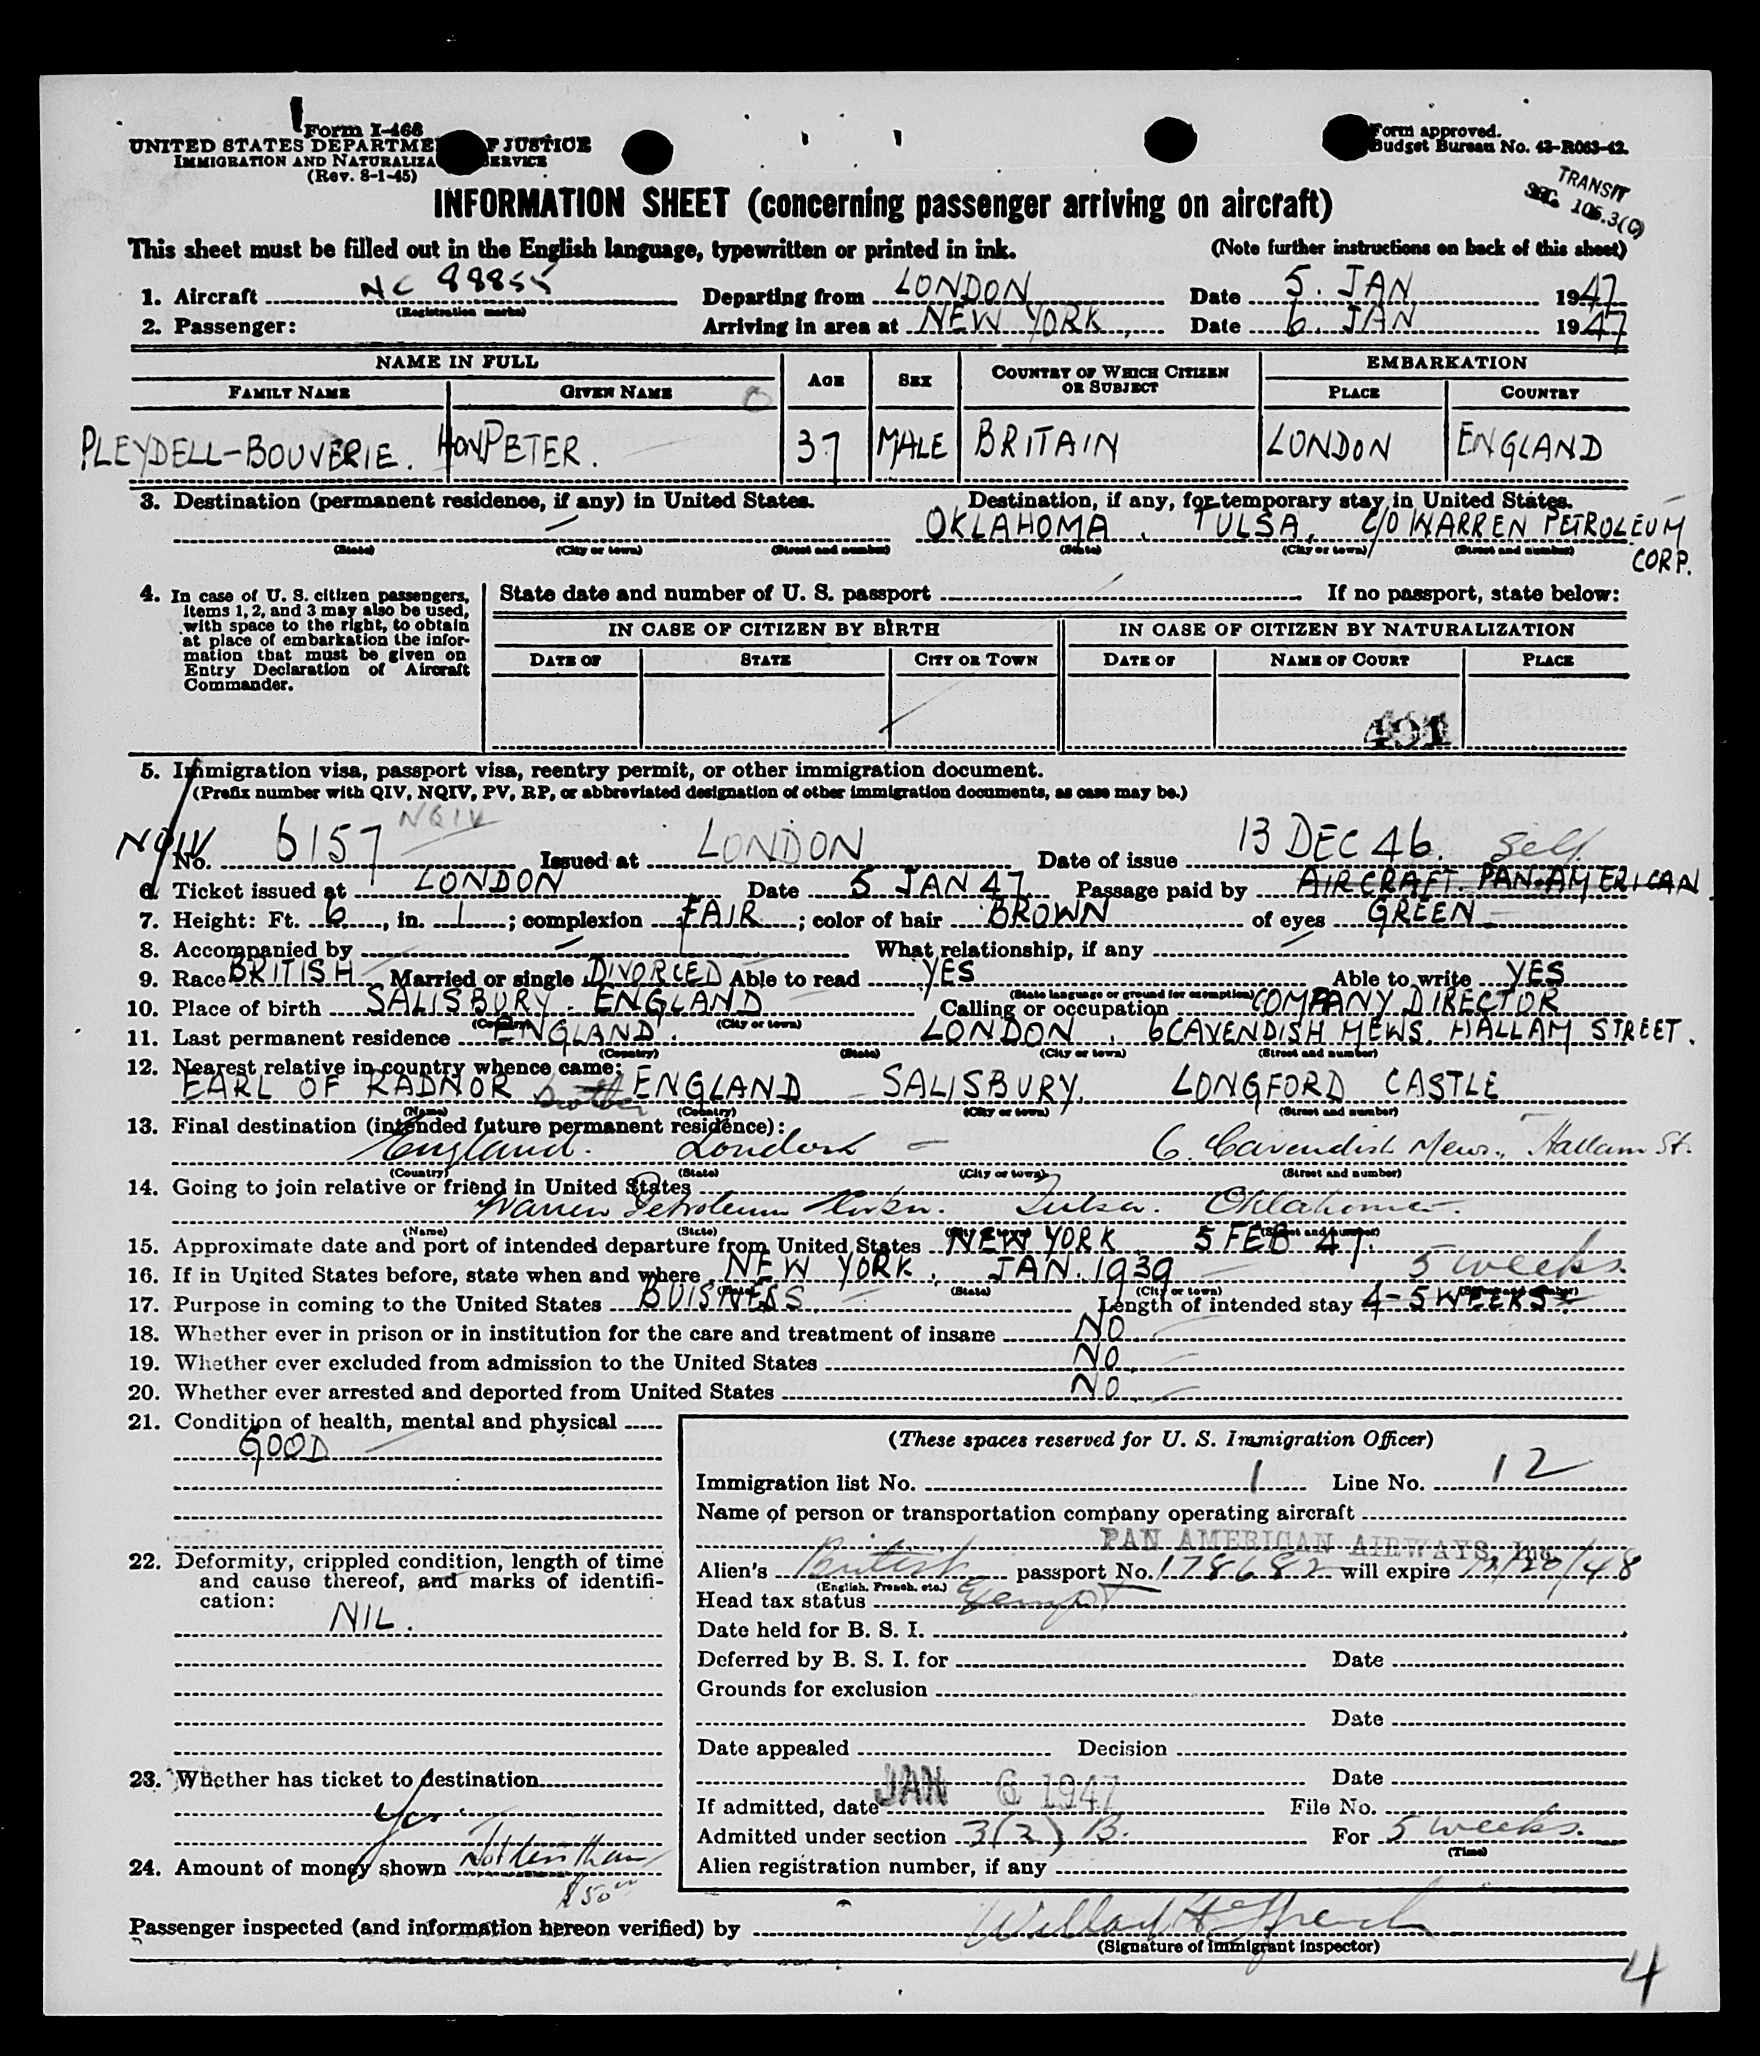 Form I-466
UNITED STATES DEPARTME JUSTICE
IMMIGRATION AND NATURALIZA SERVICE
(Rev. 8-1-45)
Form approved.
Budget Bureau No. 43-R063-42.
TRANSIT
SEC. 105.3(C)
INFORMATION SHEET (concerning passenger arriving on aircraft)
This sheet must be filled out in the English language, typewritten or printed in ink. (Note further instructions on back of this sheet)
1. Aircraft NC 88855 Departing from LONDON Date 5. JAN 1947
(Registration marks)
2. Passenger: Arriving in area at NEW YORK, Date 6. JAN 1947
NAME IN FULL AGE SEX COUNTRY OF WHICH CITIZEN OR SUBJECT EMBARKATION
FAMILY NAME GIVEN NAME PLACE COUNTRY
PLEYDELL-BOUVERIE. HON PETER. 37 MALE BRITAIN LONDON ENGLAND
3. Destination (permanent residence, if any) in United States. Destination, if any, for temporary stay in United States.
OKLAHOMA, TULSA, C/O WARREN PETROLEUM
CORP.
(State) (City or town) (Street and number) (State) (City or town) (Street and number)
4. In case of U. S. citizen passengers, items 1, 2, and 3 may also be used, with space to the right, to obtain at place of embarkation the information that must be given on Entry Declaration of Aircraft Commander.
State date and number of U. S. passport If no passport, state below:
IN CASE OF CITIZEN BY BIRTH IN CASE OF CITIZEN BY NATURALIZATION
DATE OF STATE CITY OR TOWN DATE OF NAME OF COURT PLACE
401
5. Immigration visa, passport visa, reentry permit, or other immigration document.
(Prefix number with QIV, NQIV, PV, RP, or abbreviated designation of other immigration documents, as case may be.)
NQIV
NQIV No. 6157 Issued at LONDON Date of issue 13 DEC 46. Self.
6. Ticket issued at LONDON Date 5 JAN 47 Passage paid by AIRCRAFT. PAN.AMERICAN
7. Height: Ft. 6, in. 1; complexion FAIR; color of hair BROWN of eyes GREEN
8. Accompanied by What relationship, if any
9. Race BRITISH Married or single DIVORCED Able to read YES Able to write YES
(State language or ground for exemption)
10. Place of birth SALISBURY - ENGLAND Calling or occupation COMPANY DIRECTOR
(Country) (City or town)
11. Last permanent residence ENGLAND. LONDON, 6 CAVENDISH MEWS HALLAM STREET.
(Country) (State) (City or town) (Street and number)
12. Nearest relative in country whence came:
EARL OF RADNOR brother ENGLAND SALISBURY, LONGFORD CASTLE
(Name) (Country) (City or town) (Street and number)
13. Final destination (intended future permanent residence):
England. London - 6. Cavendish Mews., Hallam St.
(Country) (State) (City or town) (Street and number)
14. Going to join relative or friend in United States
Warren Petroleum Tulsa. Oklahoma.
(Name) (State) (City or town) (Street and number)
15. Approximate date and port of intended departure from United States NEW YORK 5 FEB 47.
16. If in United States before, state when and where NEW YORK, JAN. 1939 5 weeks.
(Date) (State) (City or town) (Street and number)
17. Purpose in coming to the United States BUISNESS Length of intended stay 4-5 WEEKS.
18. Whether ever in prison or in institution for the care and treatment of insane NO
19. Whether ever excluded from admission to the United States NO
20. Whether ever arrested and deported from United States NO
21. Condition of health, mental and physical
GOOD
22. Deformity, crippled condition, length of time and cause thereof, and marks of identification:
NIL.
23. Whether has ticket to destination
Yes.
24. Amount of money shown Not less than
$50.00
(These spaces reserved for U. S. Immigration Officer)
Immigration list No. 1 Line No. 12
Name of person or transportation company operating aircraft
PAN AMERICAN AIRWAYS, Inc.
Alien's British passport No. 178682 will expire 12/20/48
(English, French, etc.)
Head tax status Exempt
Date held for B. S. I.
Deferred by B. S. I. for Date
Grounds for exclusion
Date
Date appealed Decision
Date
If admitted, date JAN 6 1947 File No.
Admitted under section 3(2) B. For 5 weeks.
(Time)
Alien registration number, if any
Passenger inspected (and information hereon verified) by
(Signature of immigrant inspector)
4